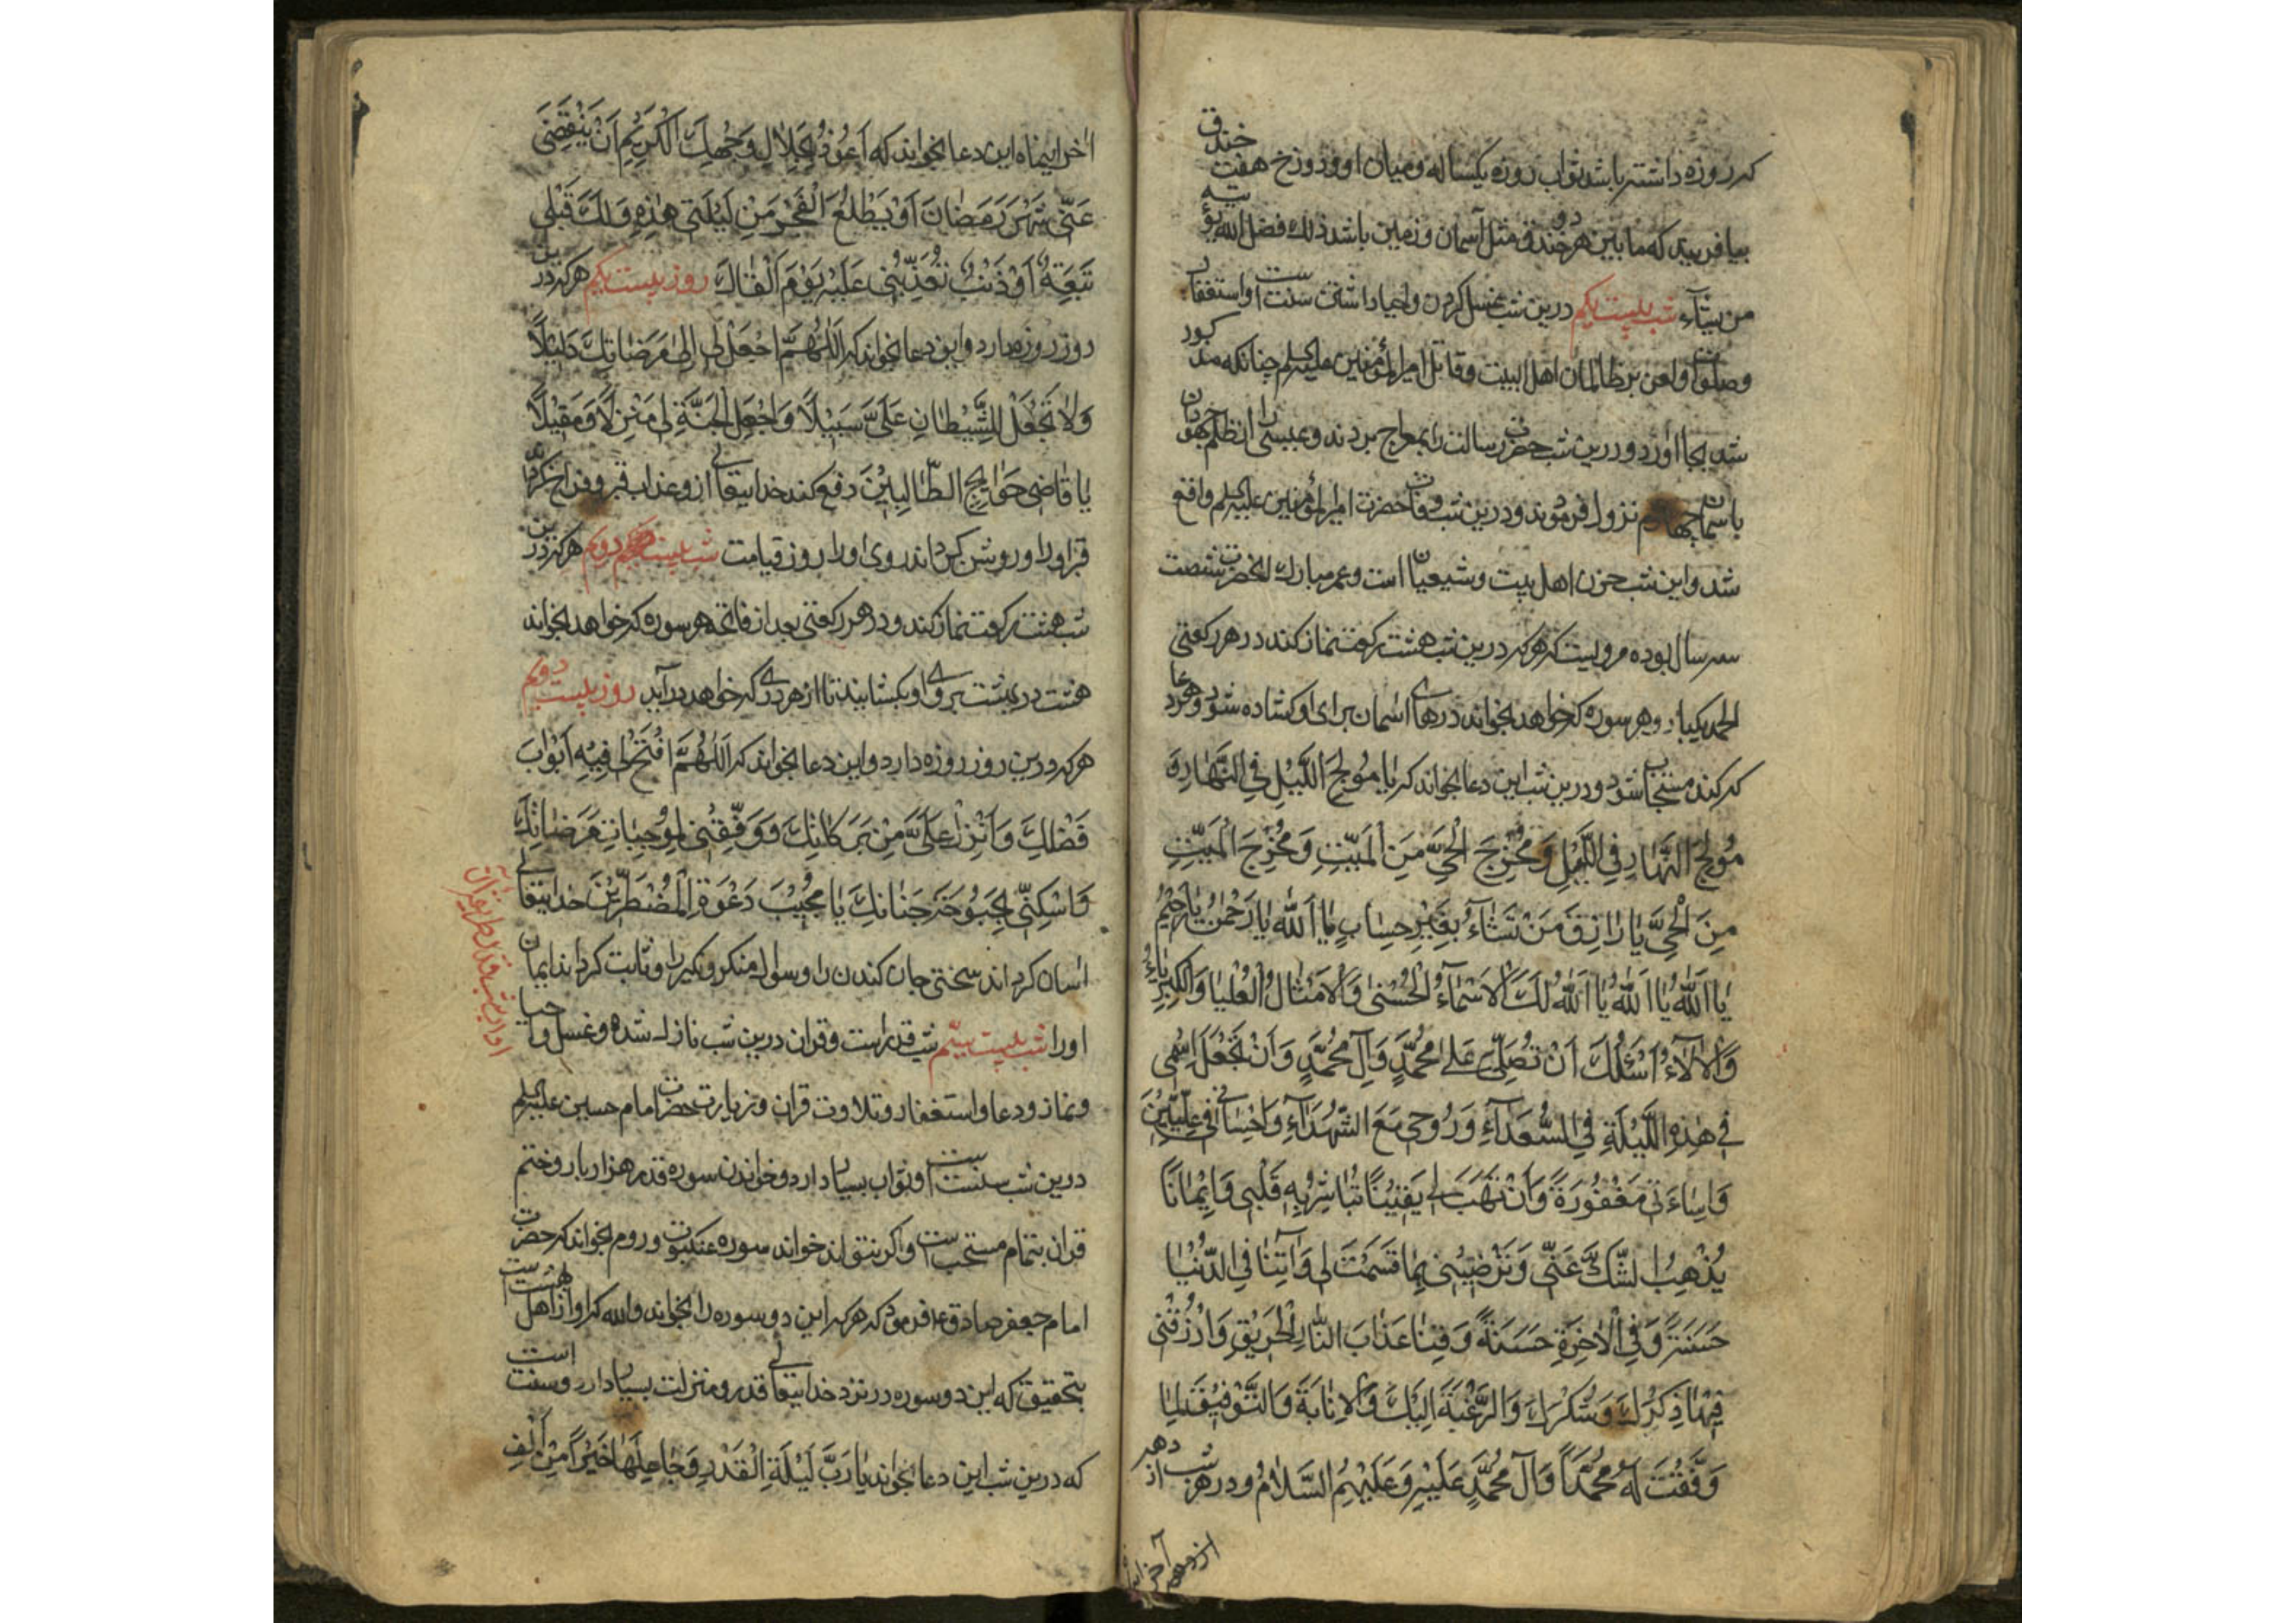 که روزه داشته باشد ثواب روزه یکساله و میان او و دوزخ هفت خندق
بیافریند که مابین هر دو خندق مثل آسمان و زمین باشد ذلک فضل الله یؤتیه
من یشآء شب بیست یکم درین شب غسل کردن و احیا داشتن سنت است و استغفار
و صلوات و لعن بر ظالمان اهل البیت و قاتل امیر المؤمنین علیه السلم چنانکه مذکور
شد بجا آورد و درین شب حضرت رسالت را بمعراج بردند و عیسی را از ظلم جهودان
باسمان چهارم نزول فرمودند و درین شب وفات حضرت امیر المؤمنین علیه السلم واقع
شد و این شب حزن اهل بیت و شیعیان است و عمر مبارک انحضرت شصت
سه سال بوده مرویست که هر که درین شب هشت رکعت نماز کند در هر رکعتی
الحمد یکبار و هر سوره که خواهد بخواند درهای اسمان برای او کشاده شود و هر دعا
که کند مستجاب شود و درین شب این دعا بخواند که یا مُولِجَ اللَّیْلِ فِی النَّهارِ وَ
مُولِجَ النَّهارِ فِی اللَّیْلِ وَ مُخْرِجَ الْحَیِّ مِنَ الْمَیِّتِ وَ مُخْرِجَ الْمَیِّتِ
مِنَ الْحَیِّ یا رازِقَ مَنْ تَشآءُ بِغَیْرِ حِسابٍ یا اَللّٰهُ یا رَحْمٰنُ یا رَحیمُ
یا اَللّٰهُ یا اَللّٰهُ یا اَللّٰهُ لَکَ الْاَسْمآءُ الْحُسْنیٰ وَ الْاَمْثالُ الْعُلْیا وَ الْکِبْرِیاءُ
وَ الْآلآءُ اَسْئَلُکَ اَنْ تُصَلِّیَ عَلیٰ مُحَمَّدٍ وَ آلِ مُحَمَّدٍ وَ اَنْ تَجْعَلَ اِسْمی
فی هٰذِهِ اللَّیْلَةِ فِی السُّعَدآءِ وَ رُوحی مَعَ الشُّهَدآءِ وَ اِحْسانی فی عِلِّیّینَ
وَ اِساءَتی مَغْفُورَةً وَ اَنْ تَهَبَ لی یَقیناً تُباشِرُ بِهِ قَلْبی وَ ایماناً
یُذْهِبُ الشَّکَّ عَنّی وَ تَرْضِیَنی بِما قَسَمْتَ لی وَ آتِنا فِی الدُّنْیا
حَسَنَةً وَ فِی الْآخِرَةِ حَسَنَةً وَ قِنا عَذابَ النّارِ الْحَریقِ وَ ارْزُقْنی
فیها ذِکْرَکَ وَ شُکْرَکَ وَ الرَّغْبَةَ اِلَیْکَ وَ الْاِنابَةَ وَ التَّوْفیقَ لِما
وَفَّقْتَ لَهُ مُحَمَّداً وَ آلَ مُحَمَّدٍ عَلَیْهِ وَ عَلَیْهِمُ السَّلامُ و در هر شب از دهه
از دهه آخر
آخر اینماه این دعا بخواند که اَعُوذُ بِجَلالِ وَجْهِکَ الْکَریمِ اَنْ یَنْقَضِیَ
عَنّی شَهْرُ رَمَضانَ اَوْ یَطْلُعَ الْفَجْرُ مِنْ لَیْلَتی هٰذِهِ وَ لَکَ قِبَلی
تَبِعَةٌ اَوْ ذَنْبٌ تُعَذِّبُنی عَلَیْهِ یَوْمَ اَلْقاکَ روز بیست یکم هر که درین
روز روزه دارد و این دعا بخواند که اَللّٰهُمَّ اجْعَلْ لی اِلیٰ مَرَضاتِکَ دَلیلاً
وَ لا تَجْعَلْ لِلشَّیْطانِ عَلَیَّ سَبیلاً وَ اجْعَلِ الْجَنَّةَ لی مَنْزِلاً وَ مَقیلاً
یا قاضِیَ حَوائِجِ الطّالِبینَ دفع کند خدایتعالی از و عذاب قبر و فراخ کرداند
قبر او را و روشن کرداند روی او را روز قیامت شب بیست دویم هر که درین
شب هشت رکعت نماز کند و در هر رکعتی بعد از فاتحه هر سوره که خواهد بخواند
هشت در بهشت بروی او بکشایند تا از هر دری که خواهد درآید روز بیست دویم
هر که درین روز روزه دارد و این دعا بخواند که اَللّٰهُمَّ افْتَحْ لی فیهِ اَبْوابَ
فَضْلِکَ وَ اَنْزِلْ عَلَیَّ مِنْ بَرَکاتِکَ وَ وَفِّقْنی لِمُوجِباتِ مَرَضاتِکَ
وَ اَسْکِنّی بُحْبُوحَةَ جَنّاتِکَ یا مُجیبَ دَعْوَةِ الْمُضْطَرّینَ خدایتعالی
اسان کرداند سختی جان کندن را و سوال منکر و نکیر را و ثابت کرداند ایمان
او را شب بیست سیّم شب قدر است و قران درین شب نازل شده و غسل و احیا
و نماز و دعا و استغفار و تلاوت قران و زیارت حضرت امام حسین علیه السلم
درین شب سنت است و ثواب بسیار دارد و خواندن سوره قدر هزار بار و ختم
قران بتمام مستحب است و اکر نتواند خواند سوره عنکبوت و روم بخواند که حضرت
امام جعفر صادق ع فرمود که هر که این دو سوره را بخواند والله که او از اهل بهشت است
بتحقیق که این دو سوره در نزد خدایتعالی قدر و منزلت بسیار دارد و سنت است
که درین شب این دعا بخواند یا رَبَّ لَیْلَةِ الْقَدْرِ وَ جاعِلَها خَیْراً مِنْ اَلْفِ